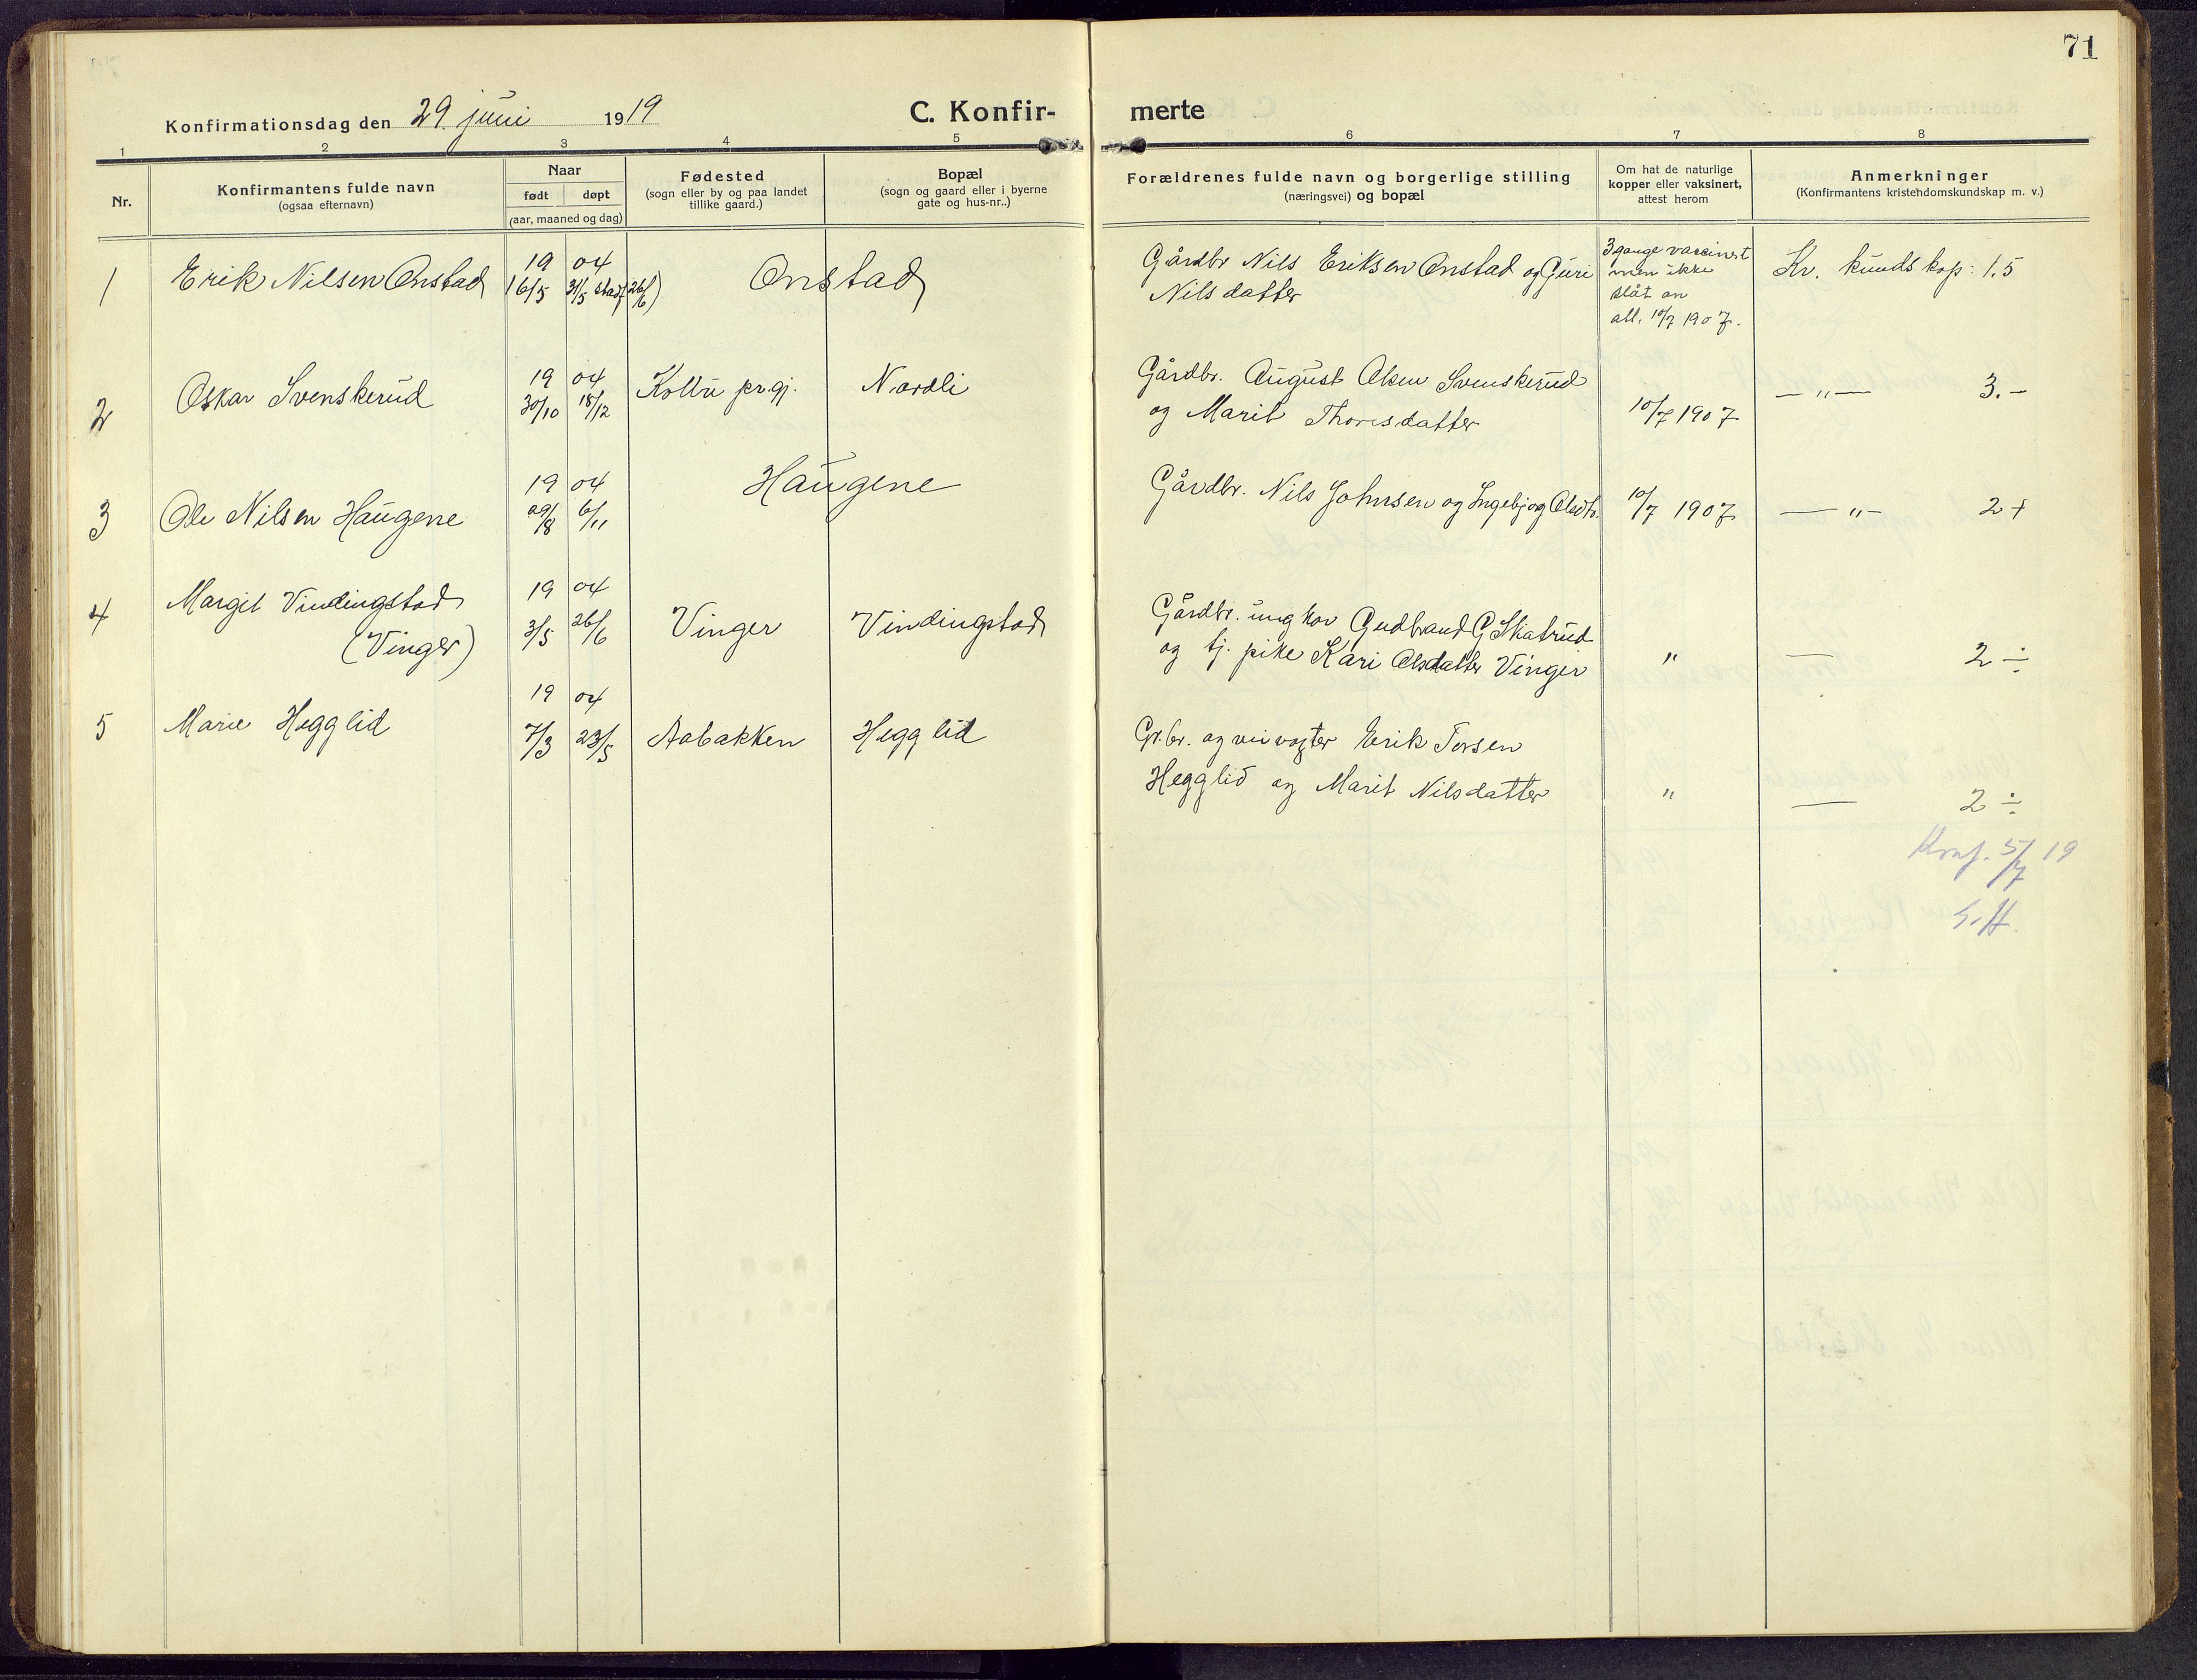 71
Konfirmationsdag den 29. juni 1919
C. Konfir-
merte
1 2 3 4 5 6 7 8
Nr.
Konfirmantens fulde navn
(ogsaa efternavn)
Naar
født døpt
(aar, maaned og dag)
Fødested
(sogn eller by og paa landet
tillike gaard.)
Bopæl
(sogn og gaard eller i byerne
gate og hus-nr..)
Forældrenes fulde navn og borgerlige stilling
(næringsvei) og bopæl
Om hat de naturlige
kopper eller vaksinert,
attest herom
Anmerkninger
(Konfirmantens kristendomskundskap m. v.)
1 Erik Nilsen Onstad
19 04
16/5 31/5 stadf 26/6)
Onstad
Gårdbr Nils Eriksen Onstad og Guri
Nilsdatter
3 gange vaccinert
men ikke
slåt an
att. 10/7 1907.
Kr. kundskap: 1.5
2 Oskar Svenskerud
19 04
30/10 18/12
Kolbu prgj.
Nordli
Gårdbr. August Olsen Svenskerud
og Marit Thoresdatter
10/7 1907
— " — 3.-
3 Ole Nilsen Haugene
19 04
29/8 6/11
Haugene
Gårdbr. Nils Johnsen og Ingebjog Olsdtr.
10/7 1907
— " — 2+
4 Margit Vindingstad
(Vinger)
19 04
3/5 26/6
Vinger
Vindingstad
Gårdbr. ungkar Gudbrand G Skatrud
og tj. pike Kari Olsdatter Vinger
" — 2 ÷
5 Marie Hegglid
19 04
7/3 23/5
Aabakken
Hegglid
Gr.br. og veivogter Erik Torsen
Hegglid og Marit Nilsdatter
" — 2 ÷
Konf. 5/7 19
S.H.